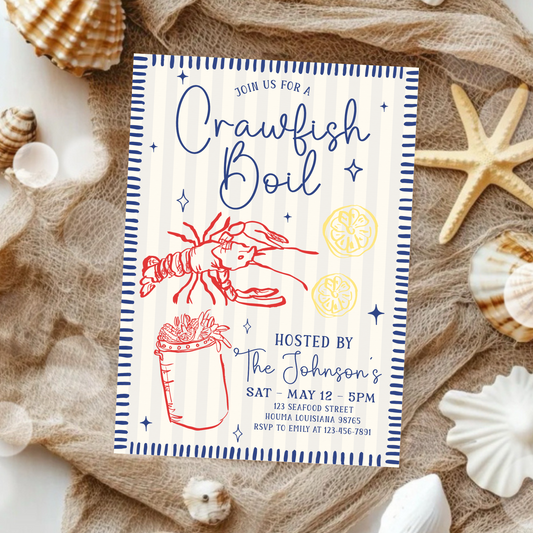 JOIN US FOR A
Crawfish
Boil
HOSTED BY
The Johnson's
SAT - MAY 12 - 5PM
123 SEAFOOD STREET
HOUMA LOUISIANA 98765
RSVP TO EMILY AT 123-456-7891